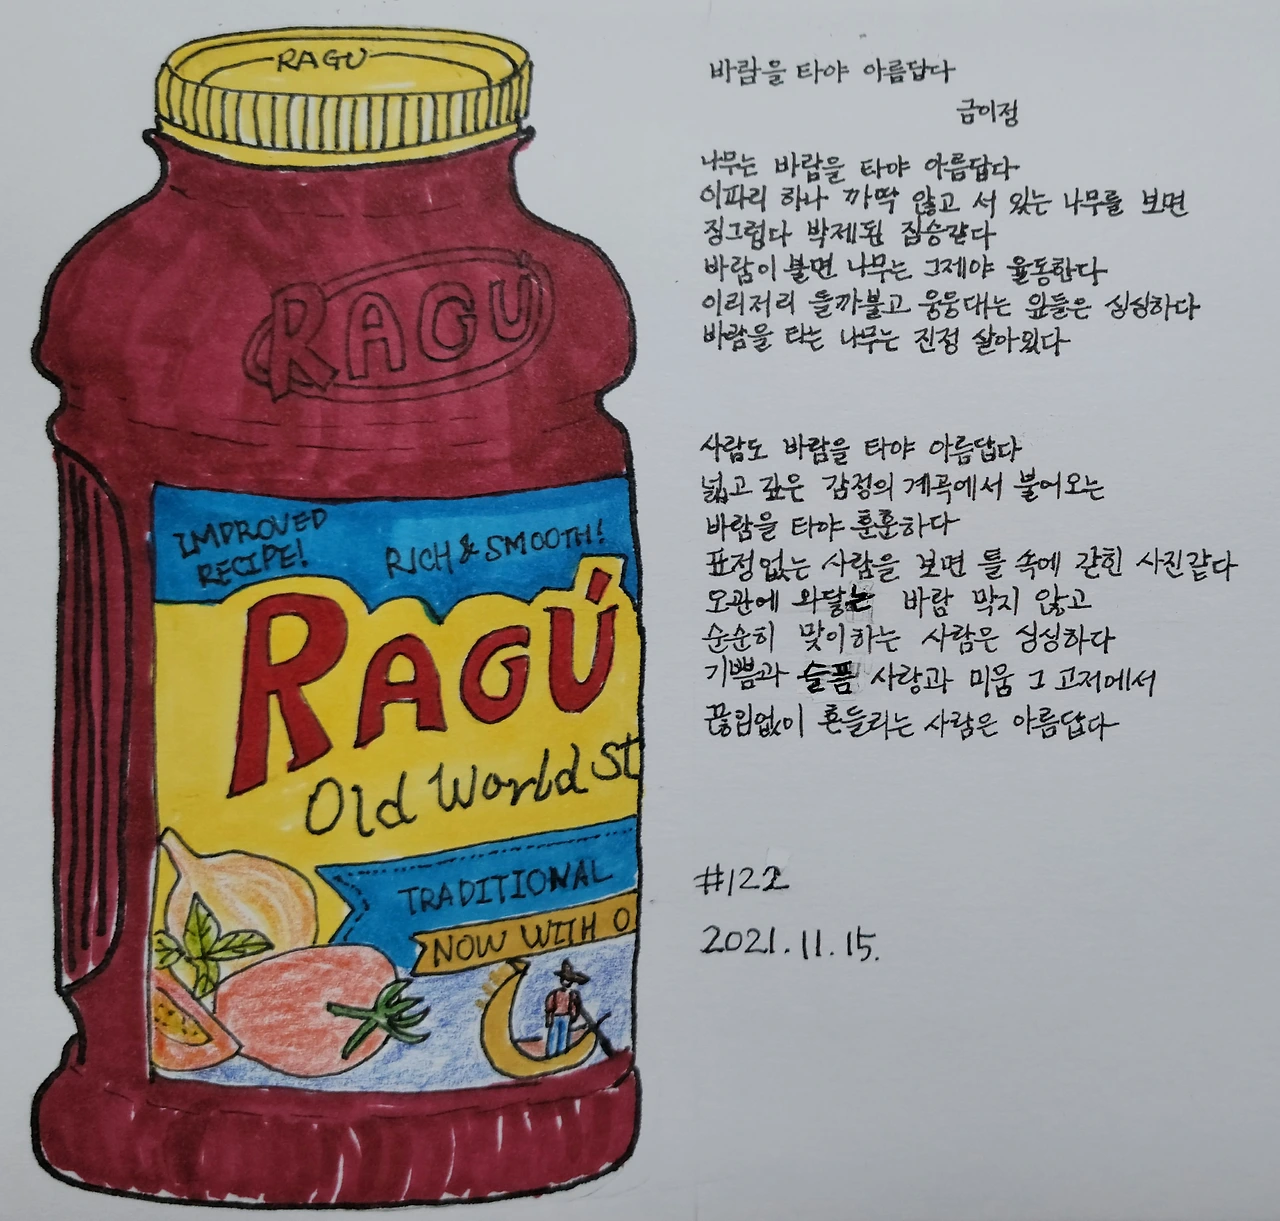 RAGU
RAGÚ
IMPROVED
RECIPE!
RICH & SMOOTH!
RAGÚ
Old World St
TRADITIONAL
NOW WITH O
바람을 타야 아름답다
금이정
나무는 바람을 타야 아름답다
이파리 하나 까딱 않고 서 있는 나무를 보면
징그럽다 박제된 짐승같다
바람이 불면 나무는 그제야 율동한다
이리저리 들까불고 웅웅대는 잎들은 싱싱하다
바람을 타는 나무는 진정 살아있다
사람도 바람을 타야 아름답다
넓고 깊은 감정의 계곡에서 불어오는
바람을 타야 훈훈하다
표정없는 사람을 보면 틀 속에 갇힌 사진같다
오관에 와닿는 바람 막지 않고
순순히 맞이하는 사람은 싱싱하다
기쁨과 슬픔 사랑과 미움 그 고저에서
끊임없이 흔들리는 사람은 아름답다
#122
2021.11.15.